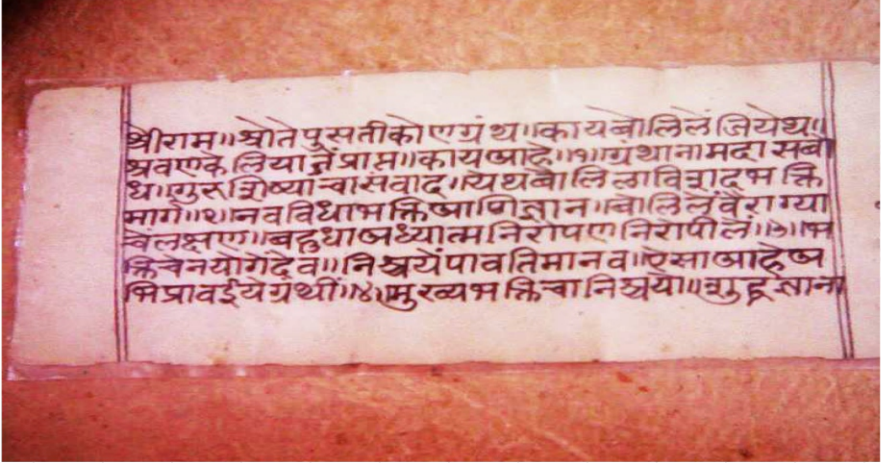 श्रीराम॥श्रोतेपुसतीकोणग्रंथ॥कायबोलिलेंजियेथ॥
श्रवणकेलियानेंप्राप्त॥कायआहे॥१॥ग्रंथानामदासबो
ध॥गुरुशिष्याचासंवाद॥येथबोलिलाविशदभक्ति
मार्ग॥२॥नवविधाभक्तिआणिज्ञान॥बोलिलेंवैराग्या
चेंलक्षण॥बहुधाअध्यात्मनिरोपणनिरोपीलें॥३॥भ
क्तिचेनयोगेंदेव॥निश्चयेंपावतिमानव॥ऐसाआहेअ
भिप्रावईयेग्रंथीं॥४॥मुख्यभक्तिचानिश्चयो॥शुद्धज्ञाना